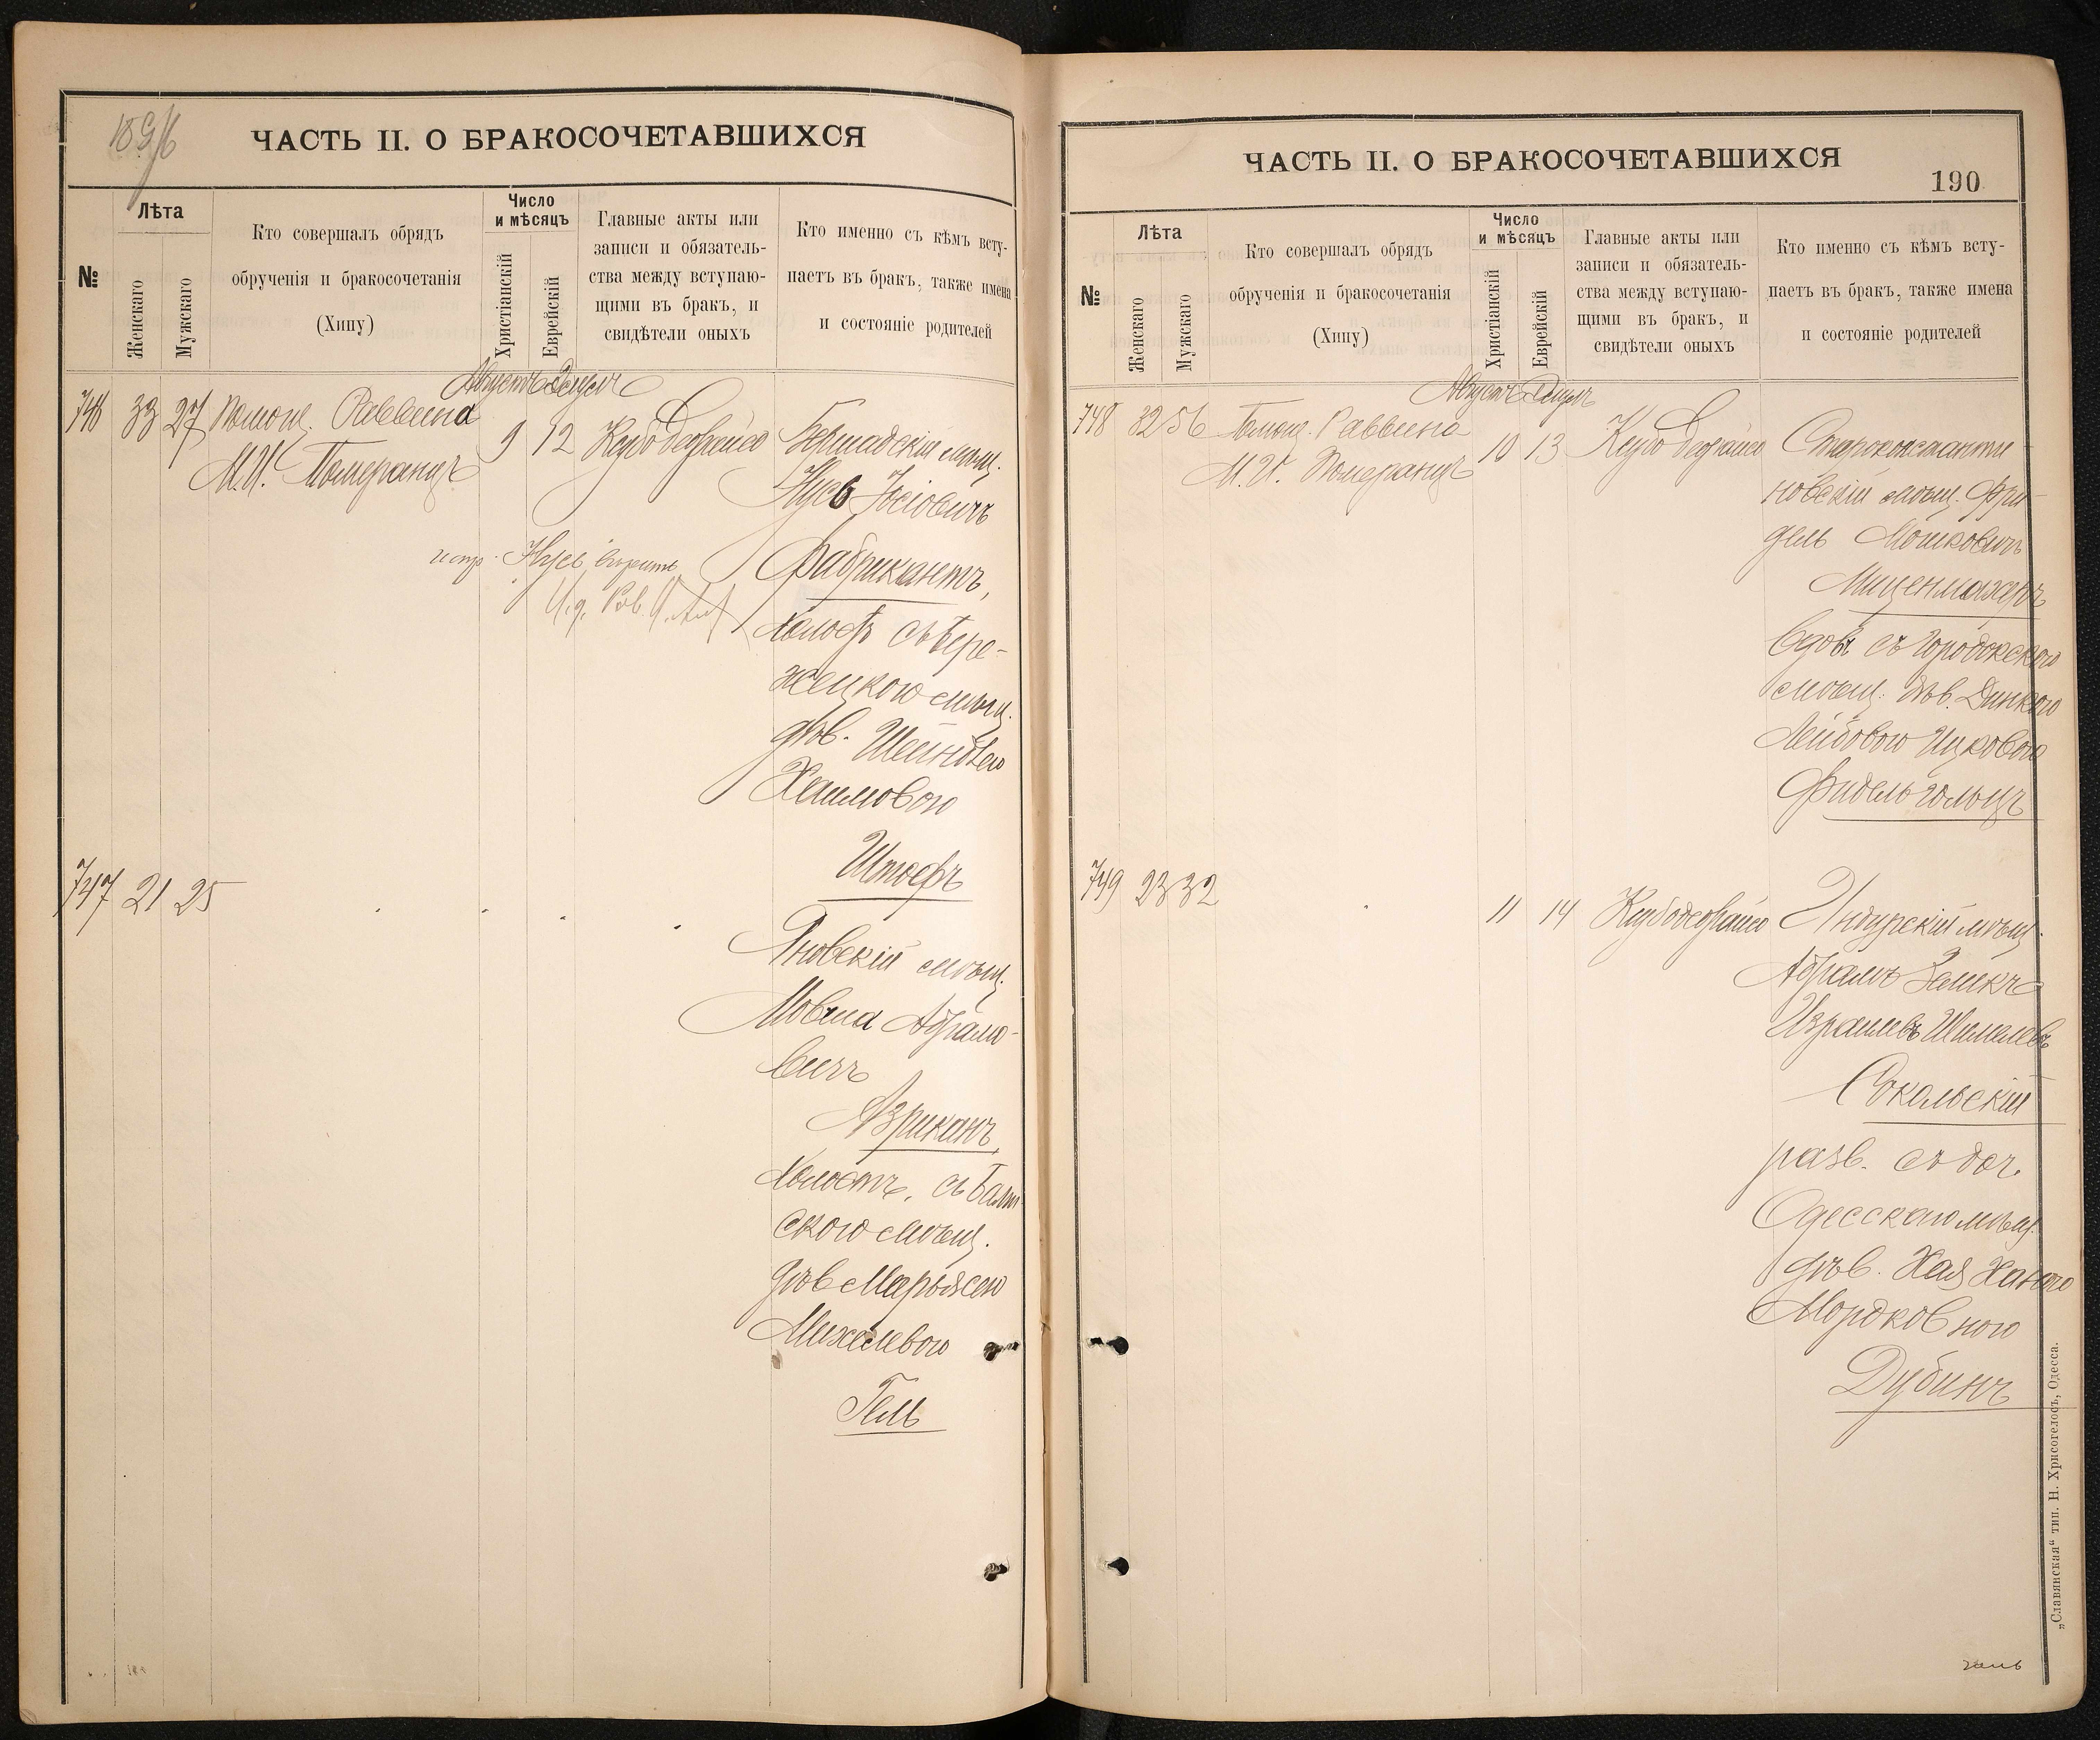 1896
ЧАСТЬ II. О БРАКОСОЧЕТАВШИХСЯ
№
Лѣта
Женскаго
Мужскаго
Кто совершалъ обрядъ
обрученія и бракосочетанія
(Хипу)
Число
и мѣсяцъ
Христіанскій
Еврейскій
Главные акты или
записи и обязатель-
ства между вступаю-
щими въ бракъ, и
свидѣтели оныхъ
Кто именно съ кѣмъ всту-
паетъ въ бракъ, также имена
и состояніе родителей
Августъ Элулъ
746 33 27 Помощ. Раввина
М.И. Померанцъ
9 12
Бершадскій мѣщ.
Нусь Іосіовичъ
Фабрикантъ,
испр. Нусь вѣрить
И. д. Рав.
холостъ съ Бере-
жецкою мѣщ.
дѣв. Шейндлею
Хаимовою
Штофъ
747 21 25
Яновскій мѣщ.
Мовша Абрамо-
вичъ
Азриканъ,
холостъ, съ Балт
скою мѣщ.
дѣв Марьясею
Михелевою
Гель
ЧАСТЬ II. О БРАКОСОЧЕТАВШИХСЯ
190
№
Лѣта
Женскаго
Мужскаго
Кто совершалъ обрядъ
обрученія и бракосочетанія
(Хипу)
Число
и мѣсяцъ
Христіанскій
Еврейскій
Главные акты или
записи и обязатель-
ства между вступаю-
щими въ бракъ, и
свидѣтели оныхъ
Кто именно съ кѣмъ всту-
паетъ въ бракъ, также имена
и состояніе родителей
Августъ Элулъ
748 32 56 Помощ. Раввина
М. И. Померанцъ
10 13
Староконстанти
новскій мѣщ. Фри-
дель Мошковичъ
Миценмахеръ
вдов. съ Городокскою
мѣщ. дѣв. Динкою
Лейбовою Ицковою
Фидельгольцъ
749 23 32
11 14
Индурскій мѣщ.
Абрамъ Зеликъ
Израилевъ Шмелевъ
Сокольскій
разв. съ доч.
Одесскаго мѣщ.
дѣв. Хая Ханою
Мордковною
Дубинъ
„Славянская“ тип. Н. Хрисогелосъ, Одесса.